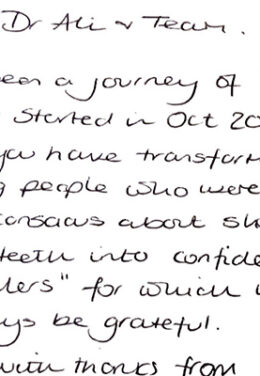 Dr Ali & Team.
een a journey of
started in Oct 20
you have transfor
g people who were
conscious about s
teeth into confide
lers" for which
ys be grateful.
with thanks from